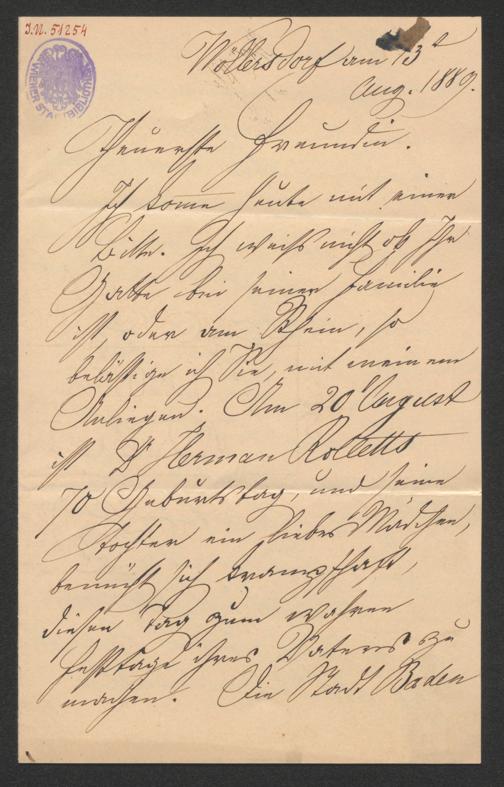 J.N. 51254
WIENER STADTBIBLIOTHEK
Wöllersdorf am 13t
Aug. 1889.
Theuerste Freundin.
Ich komme heute mit einer
Bitte. Ich weiß nicht ob Ihr
Gatte bei seiner Familie
ist, oder am Rhein, so
belästige ich Sie, mit meinem
Anliegen. Am 20t August
ist Dr Herman Rolletts
70 Geburtstag, und seine
Tochter ein liebes Mädchen,
bemüht sich krampfhaft,
diesen Tag zum wahren
Festtage ihres Vaters zu
machen. Die Stadt Baden